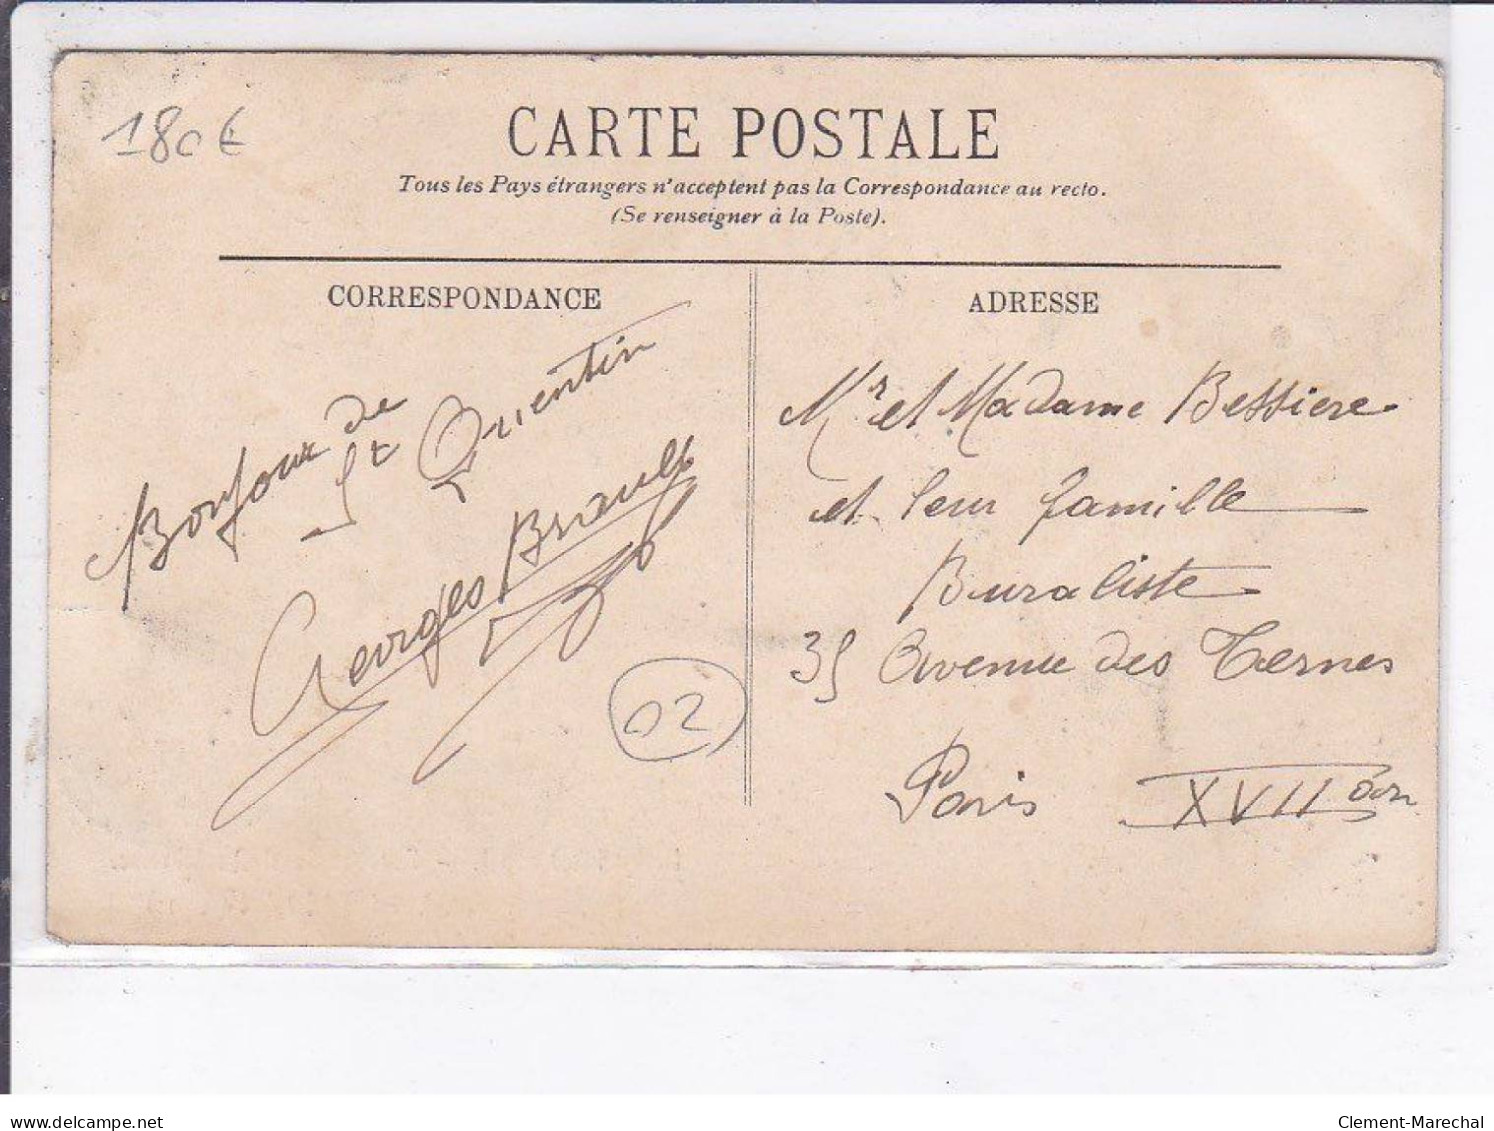 180€
CARTE POSTALE
Tous les Pays étrangers n'acceptent pas la Correspondance au recto.
(Se renseigner à la Poste).
CORRESPONDANCE
Bonjour de
St Quentin
Georges Briault
02
ADRESSE
Mr et Madame Bessiere
et leur famille
Buraliste
35 Avenue des Ternes
Paris XVII
delcampe.net
Clement-Marechal